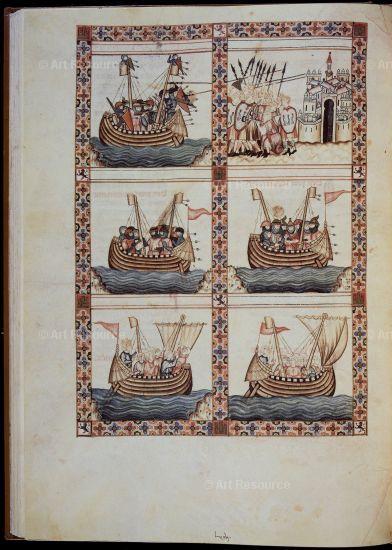 © Art Resource
© Art Resource
© Art Resource
© Art Resource
© Art Resource